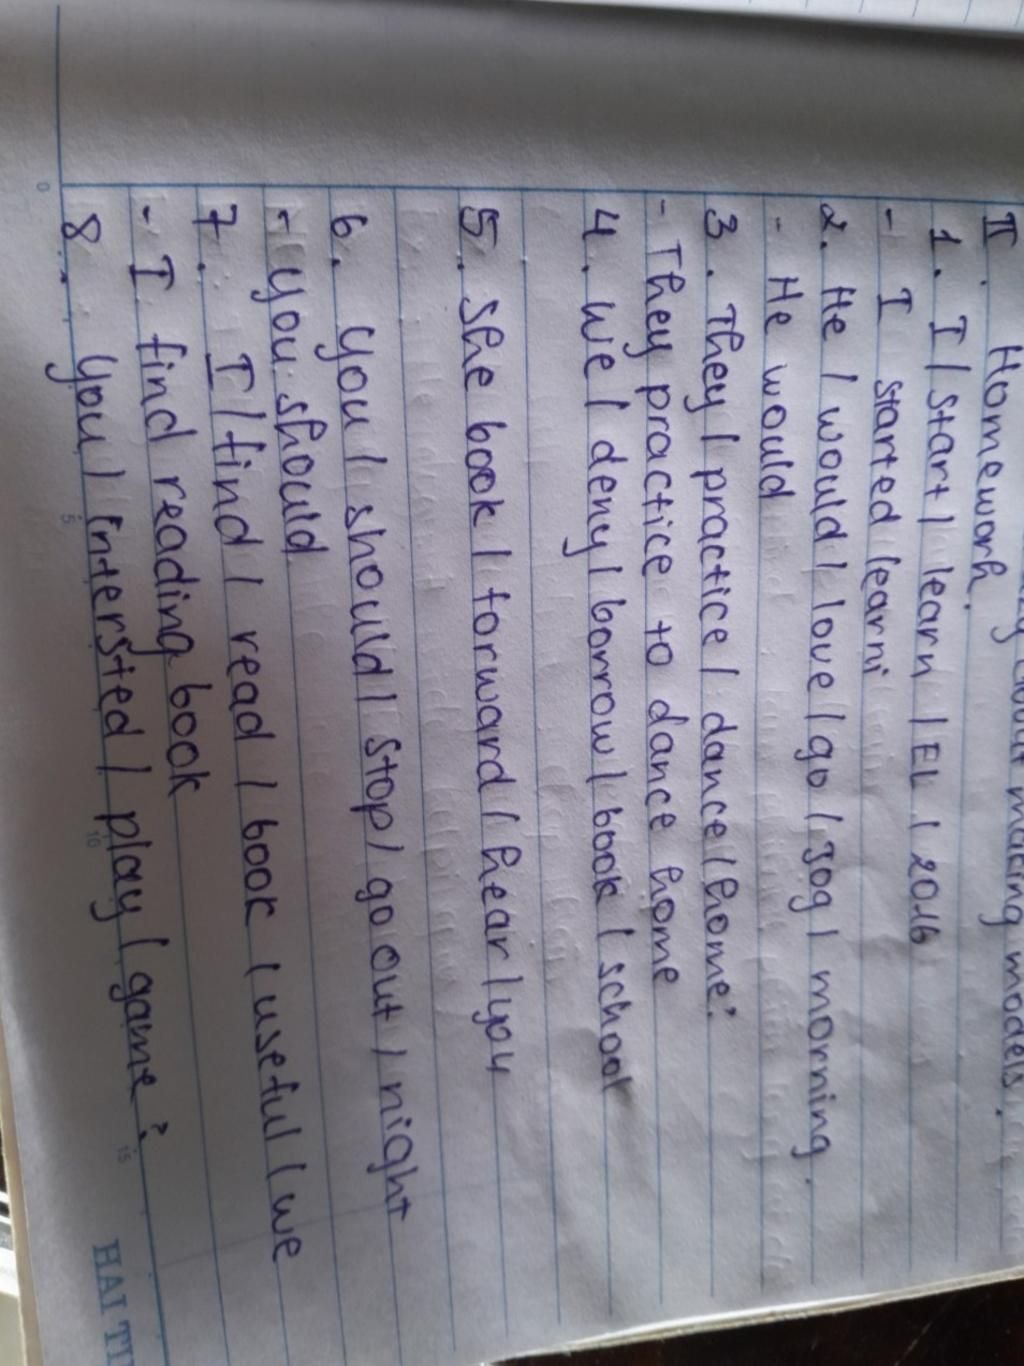 making models.
II. Homework.
1. I / start / learn / EL / 2016
- I started learni
2. He / would / love / go / jog / morning.
- He would
3. They / practice / dance / home.
- They practice to dance home
4. We / deny / borrow / book / school
5. She book / forward / hear / you
6. you / should / stop / go out / night
- you should
7. I / find / read / book / useful / we
- I find reading book
8. you / intersted / play / game?
0 5 10 15
HAI TI